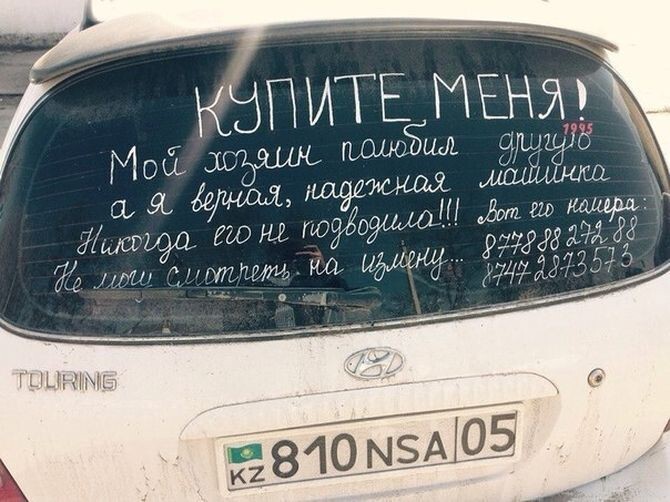 КУПИТЕ МЕНЯ!
1995
Мой хозяин полюбил другую
а я верная, надежная машинка
Никогда его не подводила!!! Вот его номера:
Не могу смотреть на измену... 87788827288
87472873573
TOURING
KZ 810NSA 05